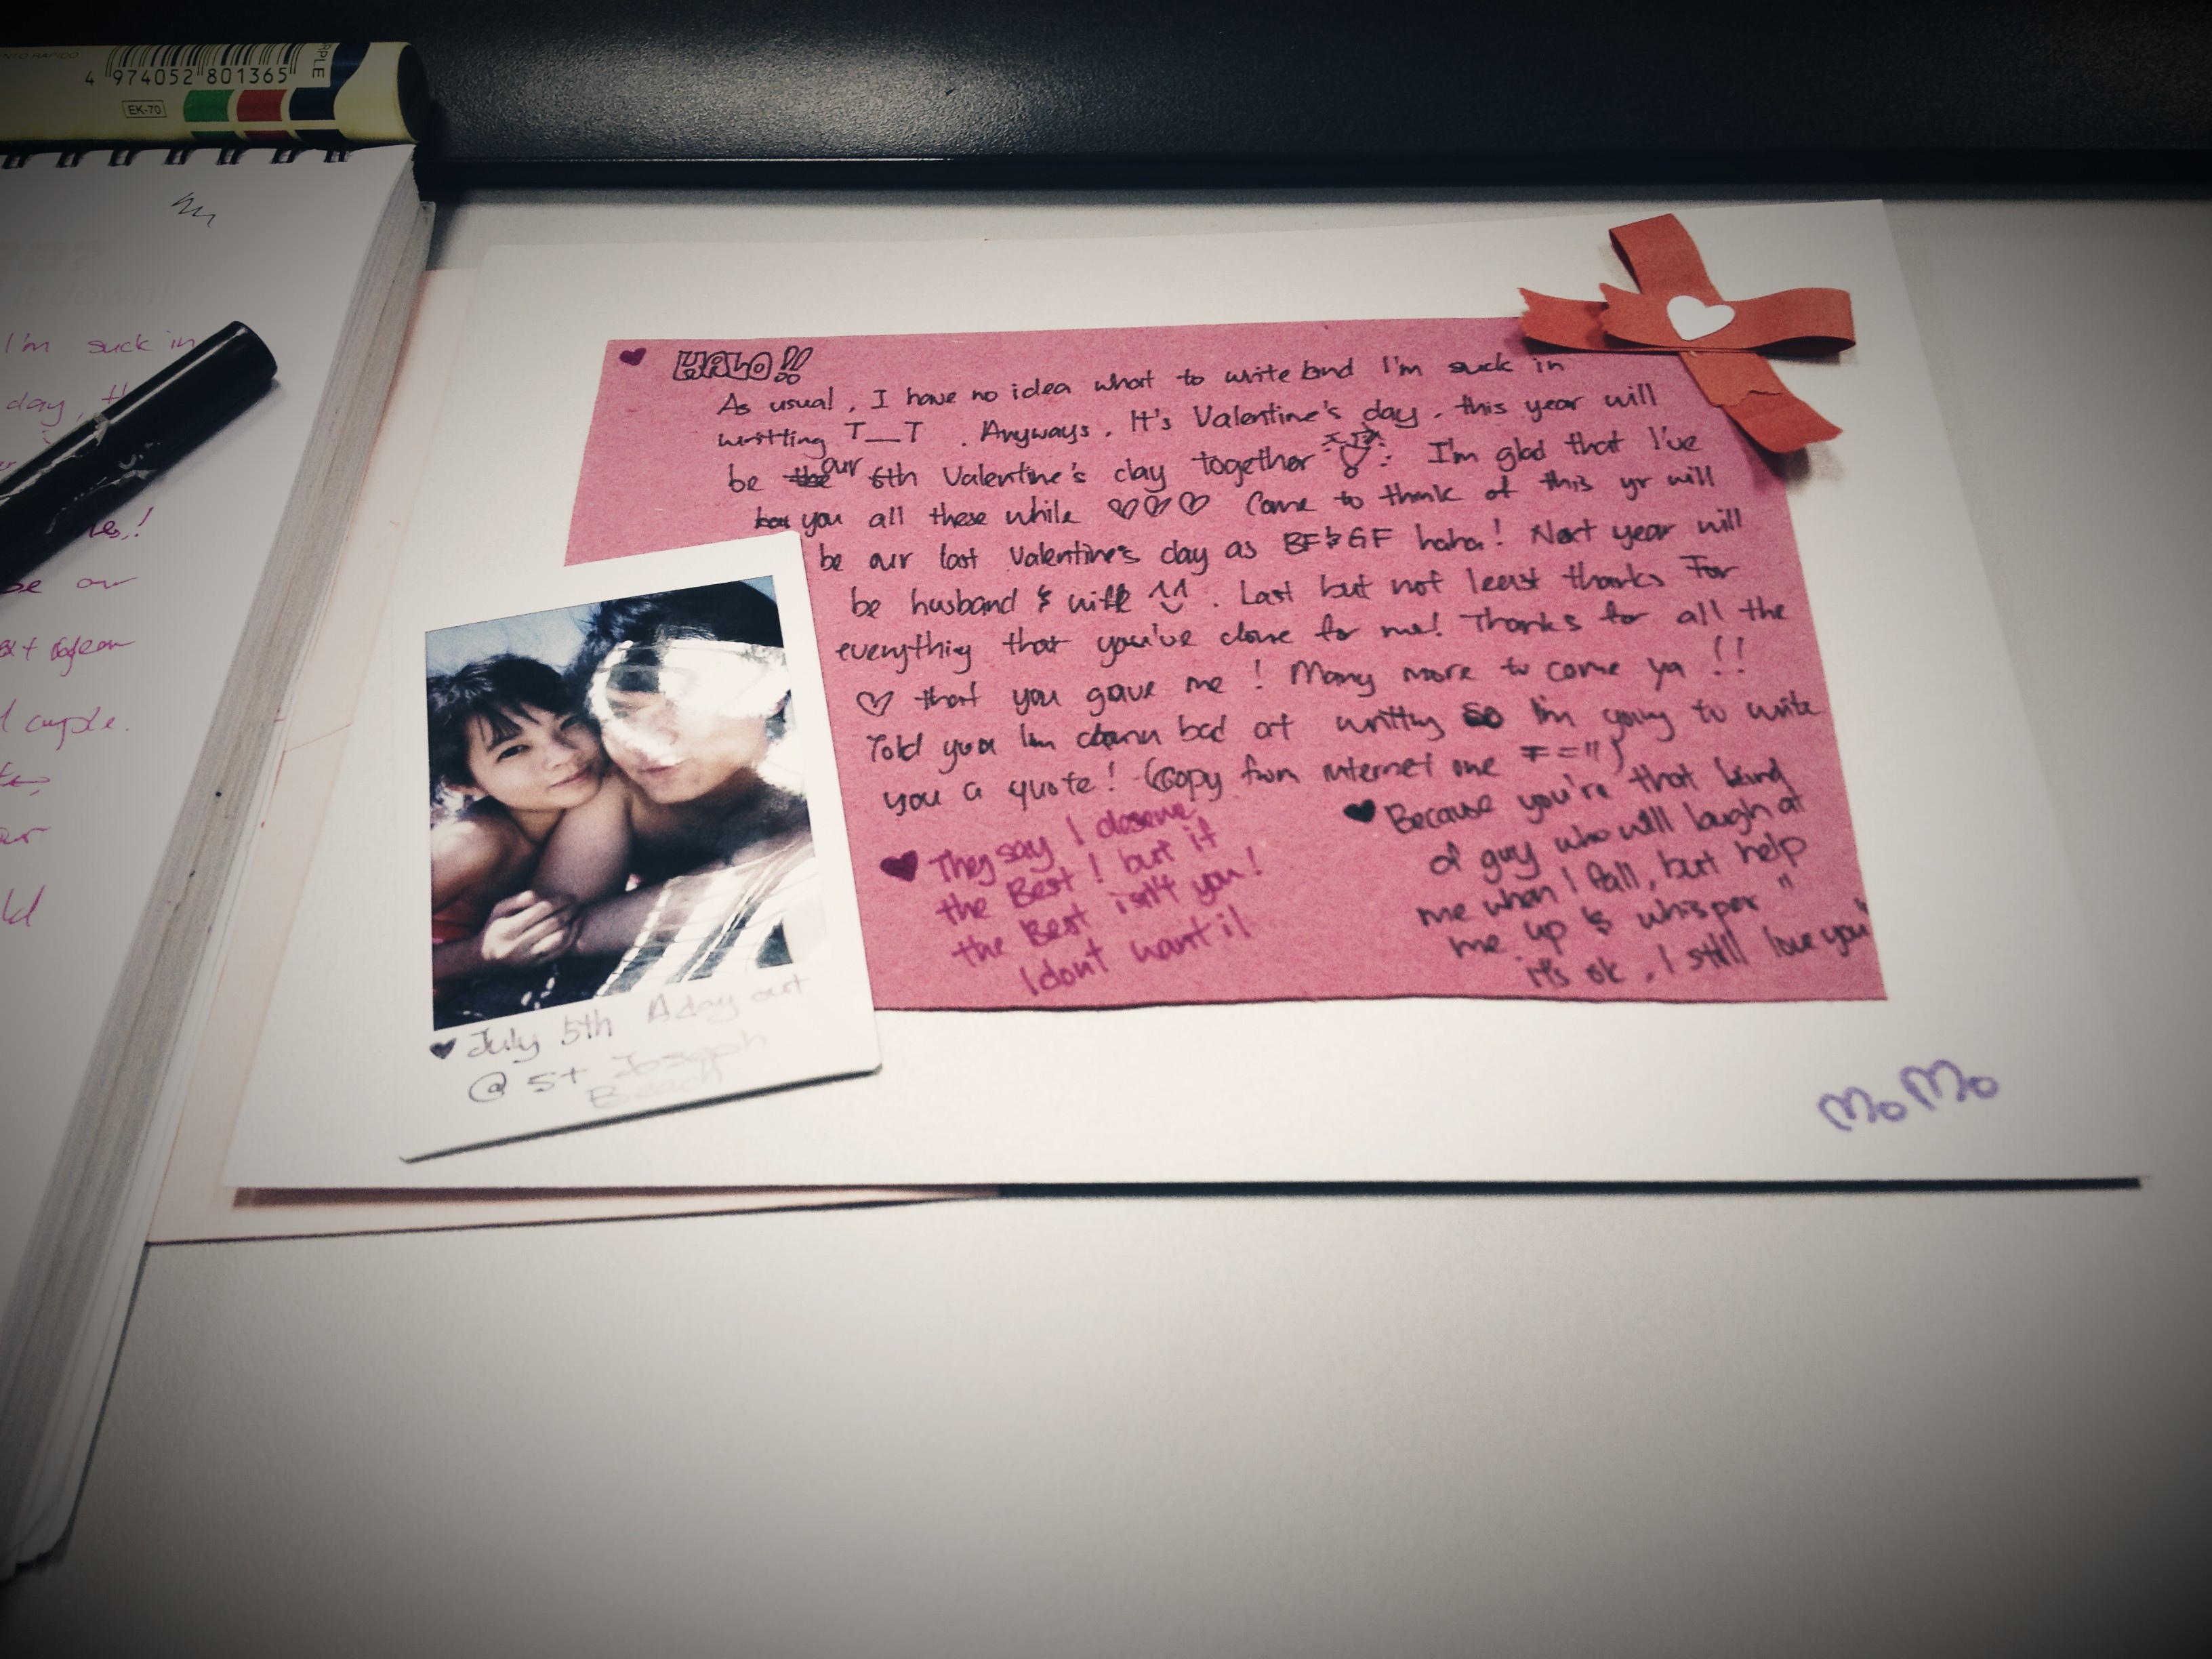 RAPIDO
4 974052 801365
EK-70
I'm suck in
day,
be our
couple.
HALO!!
As usual, I have no idea what to write and I'm suck in
writting T_T. Anyways, It's Valentine's day, this year will
be the our 6th Valentine's day together I'm glad that I've
you all these while ♡♡♡ Come to think of this yr will
be our last Valentine's day as BF & GF haha! Next year will
be husband & wife ^^. Last but not least thanks for
everything that you've done for me! Thanks for all the
♡ that you gave me! Many more to come ya!!
Told you I'm damn bad at writting so I'm going to write
you a quote! (Copy from internet one ==")
♥ They say I deserve
the Best! but if
the Best isn't you!
I dont want it
♥ Because you're that kind
of guy who will laugh at
me when I fall, but help
me up & whisper "
it's ok, I still love you"
♥ July 5th A day out
@ St Joseph
Beach
MoMo